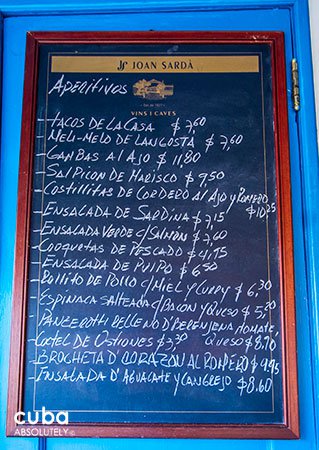 JS JOAN SARDÀ
Aperitivos
VINS I CAVES
-TACOS DE LA CASA $ 7,60
-MELI-MELO DE LANGOSTA $ 7,60
-GAMBAS Al AJO $ 11,80
-SALPICON DE MARISCO $ 9,50
-COSTILLITAS DE CORDERO Al AJO y ROMERO
$10.25
-ENSALADA DE SARDINA $ 7,15
-ENSALADA VERDE C/SALMÓN $ 7,60
-CROQUETAS DE PESCADO $ 4,75
-ENSALADA DE PULPO $ 6.50
-ROLLITO DE POLLO C/MIEL Y CURRY $ 6,30
-ESPINACA SALTEADA C/BACON Y QUESO $ 5,20
-PANZEROTTI RELLENO D'BERENJENA TOMATE,
QUESO $8.70
-COCTEL DE OSTIONES $3,30
-BROCHETA D'CORAZON AL ROMERO $ 9.95
-ENSALADA D'AGUACATE Y CANGREJO $8.60
cuba
ABSOLUTELY